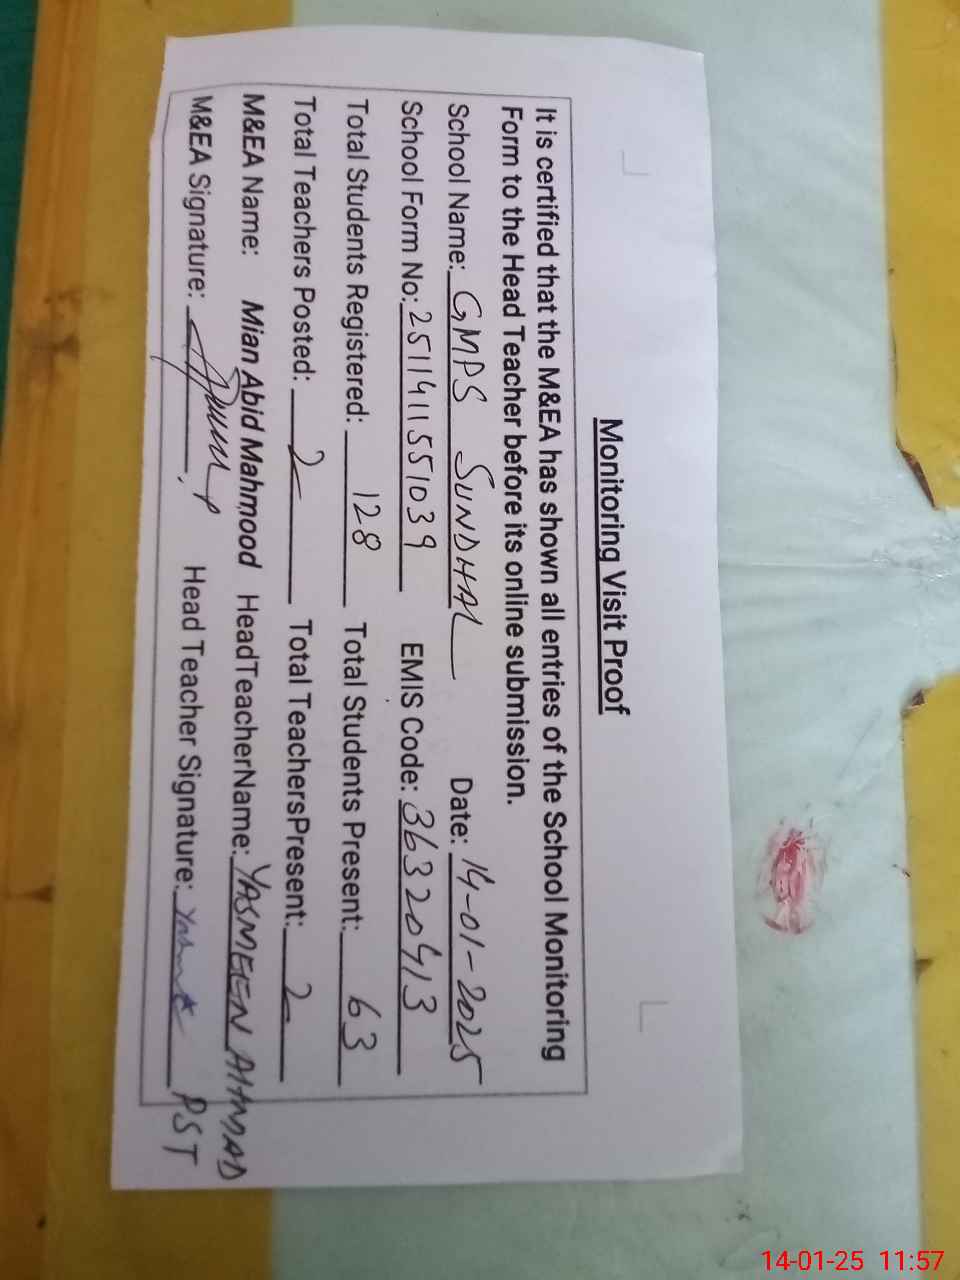 Monitoring Visit Proof
It is certified that the M&EA has shown all entries of the School Monitoring
Form to the Head Teacher before its online submission.
School Name: GMPS SUNDHAL Date: 14-01-2025
School Form No: 2511411551039 EMIS Code: 36320413
Total Students Registered: 128 Total Students Present: 63
Total Teachers Posted: 2 Total TeachersPresent: 2
M&EA Name: Mian Abid Mahmood HeadTeacherName: YASMEEN AHMAD
M&EA Signature: Head Teacher Signature: PST
14-01-25 11:57